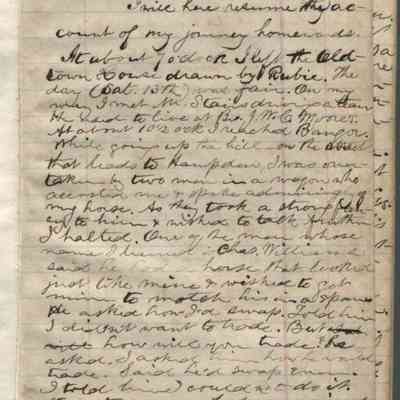 I will here resume my ac-
count of my journey homewards.
At about 7 o'clock I left the Old-
town House drawn by Rubie. The
day (Oct. 13th) was fair. On my
way I met Mr. Stairs driving a team
He used to live at J. W. C. Moore's.
At about 10 o'clock I reached Bangor.
While going up the hill on the street
that leads to Hampden, I was over-
taken by two men in a wagon who
accosted me & spoke admiringly of
my horse. As they took a strong
to him & wished to talk
I halted. One of the men whose
name I learned Chas. Williams
said he horse that looked
just like mine & wished to get
mine to match his in a span.
He asked how I'd swap. Told him
I did not want to trade. But
how will you trade? he
asked. I asked him how he would
trade. Said he'd swap even.
I told him I could not do it.